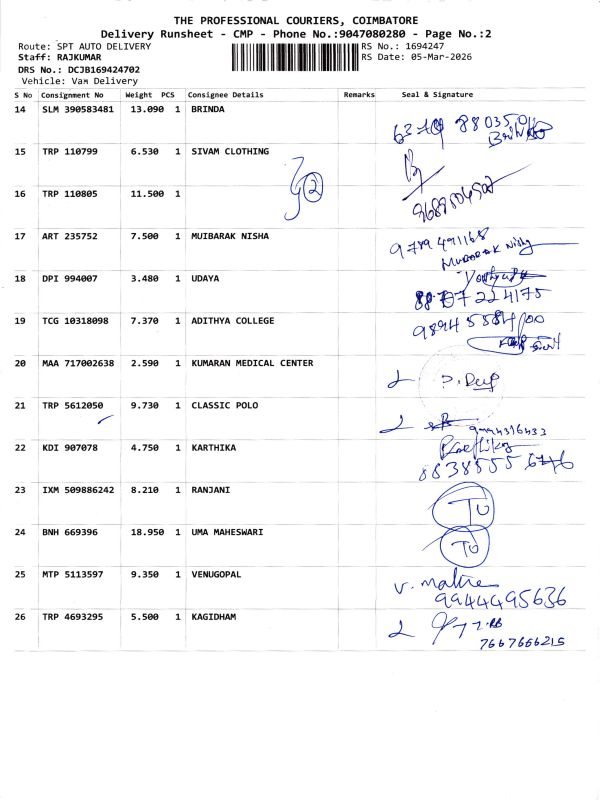 THE PROFESSIONAL COURIERS, COIMBATORE
Delivery Runsheet - CMP - Phone No.:9047080280 - Page No.:2
Route: SPT AUTO DELIVERY RS No.: 1694247
Staff: RAJKUMAR RS Date: 05-Mar-2026
DRS No.: DCJB169424702
Vehicle: Vam Delivery
S No Consignment No Weight PCS Consignee Details Remarks Seal & Signature
14 SLM 390583481 13.090 1 BRINDA
15 TRP 110799 6.530 1 SIVAM CLOTHING
2
16 TRP 110805 11.500 1
17 ART 235752 7.500 1 MUIBARAK NISHA 9789491168
MUBARAK Nisha
18 DPI 994007 3.480 1 UDAYA
224175
19 TCG 10318098 7.370 1 ADITHYA COLLEGE
20 MAA 717002638 2.590 1 KUMARAN MEDICAL CENTER
21 TRP 5612050 9.730 1 CLASSIC POLO
9994316433
22 KDI 907078 4.750 1 KARTHIKA Karthika
23 IXM 509886242 8.210 1 RANJANI TU
24 BNH 669396 18.950 1 UMA MAHESWARI TU
25 MTP 5113597 9.350 1 VENUGOPAL
9944495636
26 TRP 4693295 5.500 1 KAGIDHAM
7667666215